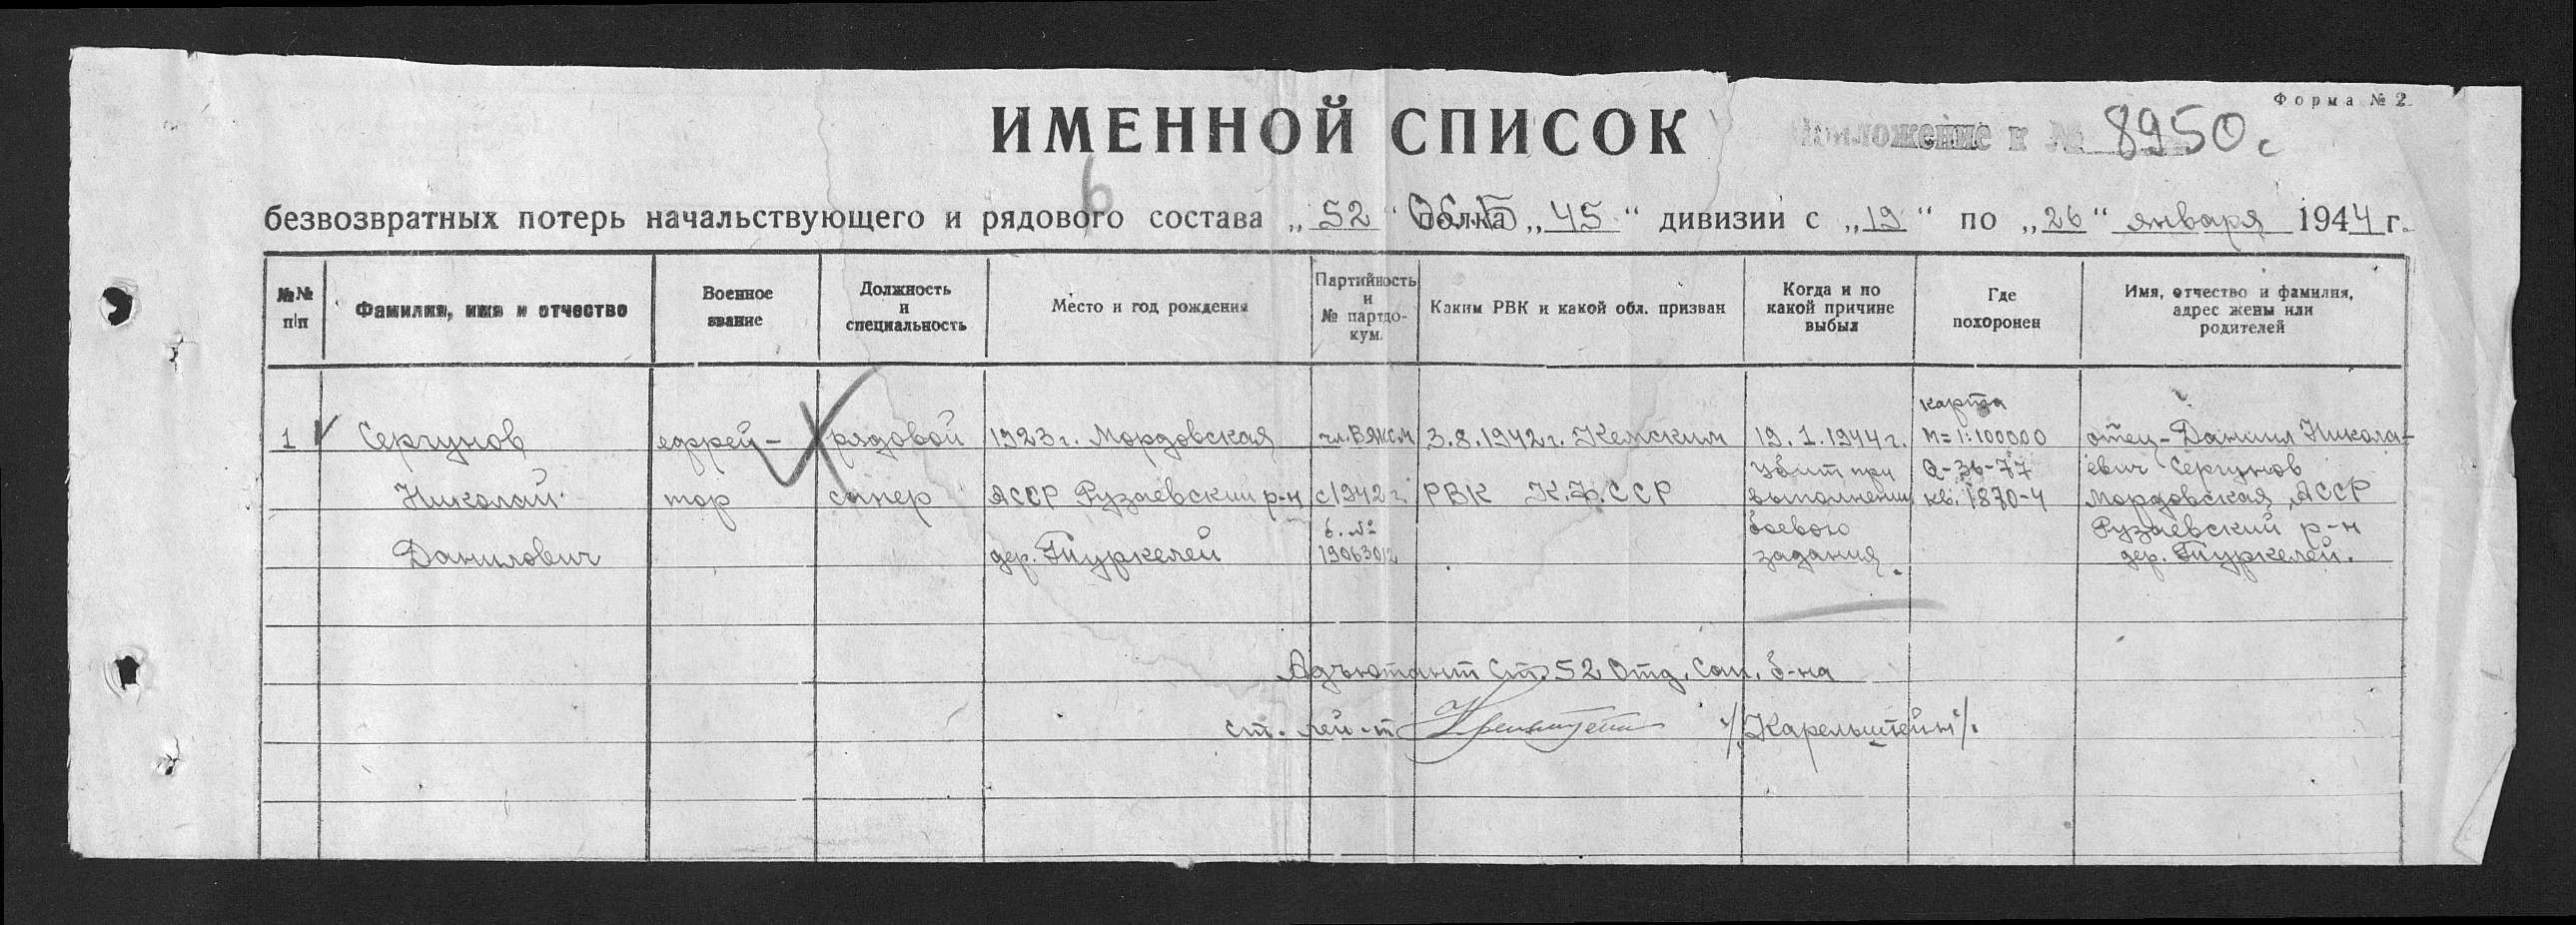 Форма № 2
ИМЕННОЙ СПИСОК
Приложение к № 8950с
6
безвозвратных потерь начальствующего и рядового состава „52" полка „45" дивизии с „19" по „26" января 1944 г.
№№ п/п
Фамилия, имя и отчество
Военное звание
Должность и специальность
Место и год рождения
Партийность и № партдокум.
Каким РВК и какой обл. призван
Когда и по какой причине выбыл
Где похоронен
Имя, отчество и фамилия, адрес жены или родителей
1
Сергунов
Николай
Данилович
ефрей-
тор
рядовой
сапер
1923 г. Мордовская
АССР Рузаевский р-н
дер. Пуркелей
чл. ВЛКСМ
с 1942 г.
б. №
19063012
3.8.1942 г. Кемским
РВК К.Ф.ССР
19.1.1944 г.
Убит при
выполнении
боевого
задания.
карта
М = 1:100000
Q-36-77
кв. 1870-4
отец - Даниил Никола-
евич Сергунов
Мордовская АССР
Рузаевский р-н
дер. Пуркелей.
Адъютант Ст. 52 Отд. Сап. б-на
ст. лей-т
/Карельштейн/.